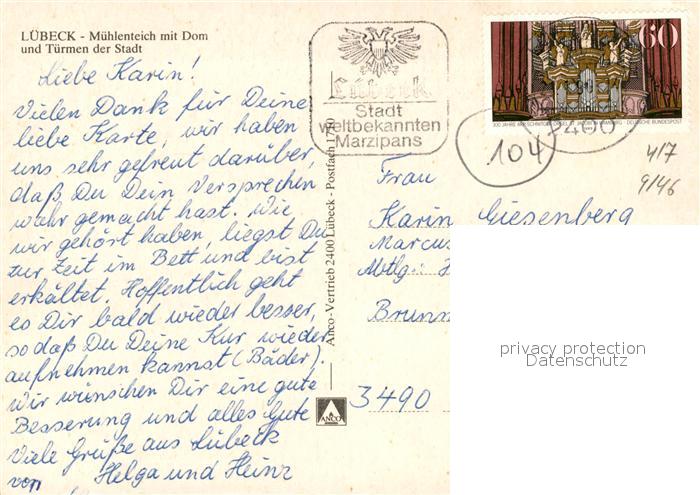 LÜBECK - Mühlenteich mit Dom
und Türmen der Stadt
Liebe Karin!
Vielen Dank für Deine
liebe Karte, wir haben
uns sehr gefreut darüber,
daß Du Dein Versprechen
wahr gemacht hast. Wie
wir gehört haben, liegst Du
zur Zeit im Bett und bist
erkältet. Hoffentlich geht
es Dir bald wieder besser,
so daß Du Deine Kur wieder
aufnehmen kannst (Bäder).
Wir wünschen Dir eine gute
Besserung und alles Gute
Viele Grüße aus Lübeck
von Helga und Heinz
Anco-Vertrieb 2400 Lübeck - Postfach 1740
ANCO
Lübeck
Stadt
weltbekannten
Marzipans
60
300 JAHRE ARP-SCHNITGER-ORGEL
DEUTSCHE BUNDESPOST
104
4/7
9/46
Frau
Karin Giesenberg
Marcus
Abtlg.:
Brunn
3490
privacy protection
Datenschutz